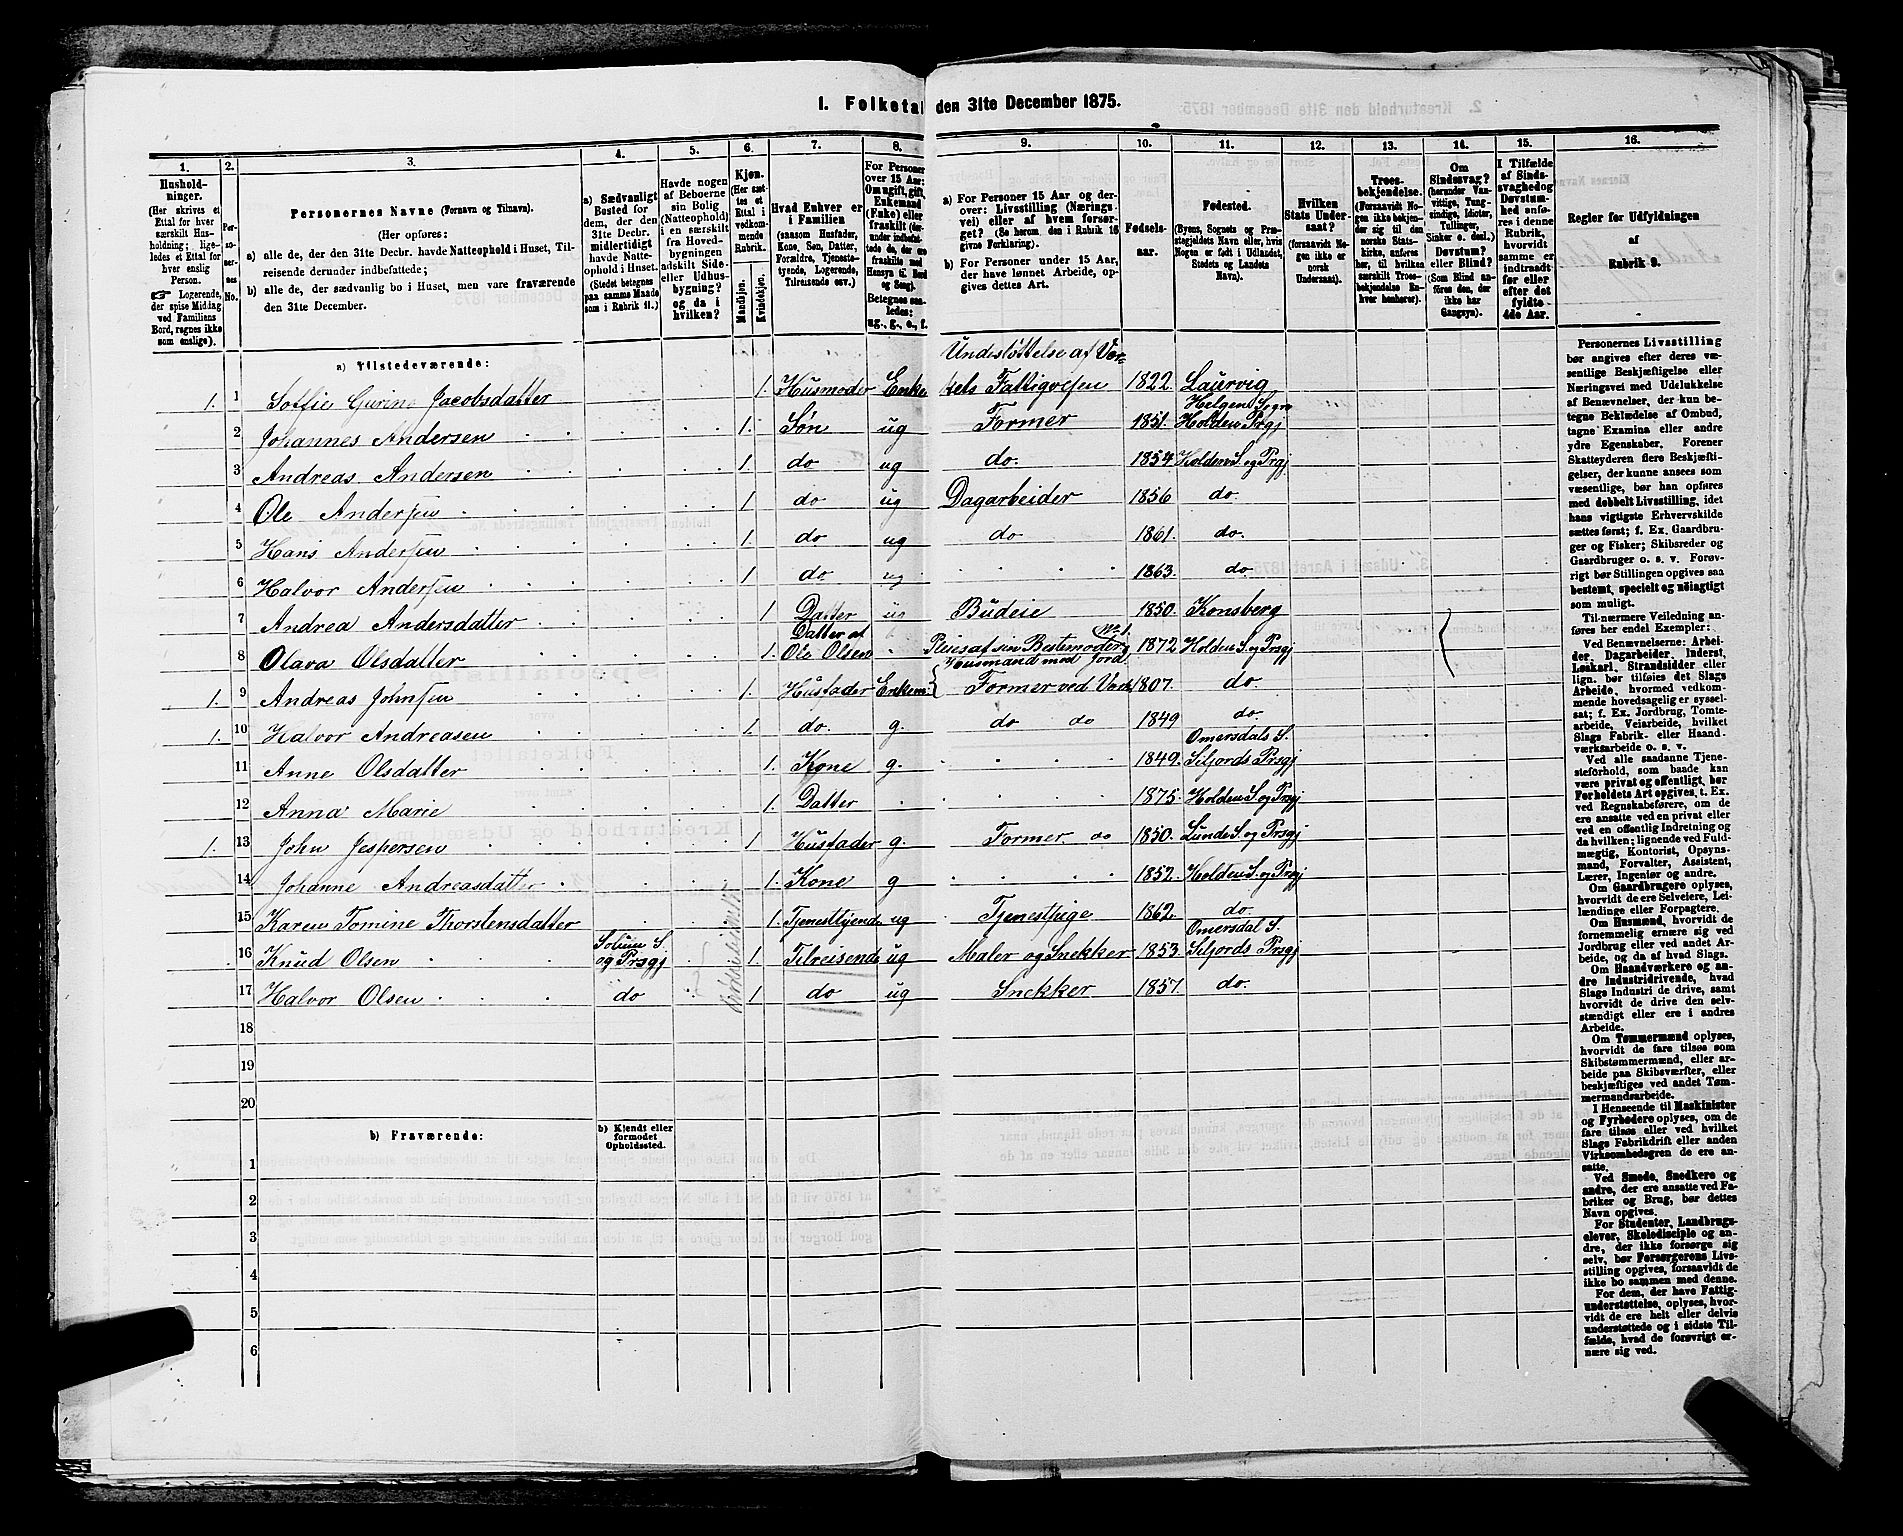 1. Folketal den 31te December 1875.
1. 2. 3. 4. 5. 6. 7. 8. 9. 10. 11. 12. 13. 14. 15. 16.
Hushold-
ninger.
(Her skrives et
Ettal for hver
særskilt Hus-
holdning; lige-
ledes et Ettal for
hver enslig
Person.
☞ Logerende,
der spise Middag
ved Familiens
Bord, regnes ikke
som enslige).
Per-
so-
ner-
nes
No.
Personernes Navne (Fornavn og Tilnavn).
(Her opføres:
a) alle de, der den 31te Decbr. havde Natteophold i Huset, Til-
reisende derunder indbefattede;
b) alle de, der sædvanlig bo i Huset, men vare fraværende
den 31te December.
a) Sædvanligt
Bosted for
dem, der den
31te Decbr.
midlertidigt
havde Natte-
ophold i Huset.
(Stedet betegnes
paa samme Maade
som i Rubrik 11.)
Havde nogen
af Beboerne
sin Bolig
(Natteophold)
i en særskilt
fra Hoved-
bygningen
adskilt Side-
eller Udhus-
bygning?
og da i
hvilken?
Kjøn.
(Her sæt-
tes et
Ettal i
vedkom-
mende
Rubrik.
Mandkjøn.
Kvindekjøn.
Hvad Enhver er
i Familien
(saasom Husfader,
Kone, Søn, Datter,
Forældre, Tjeneste-
tyende, Logerende,
Tilreisende osv.)
For Personer
over 15 Aar:
Om ugift, gift,
Enkemand
(Enke) eller
fraskilt (der-
under indbefat-
tede de, der ere
fraskilte med
Hensyn til Bord
og Seng).
Betegnes saa-
ledes:
ug., g., e., f.
a) For Personer 15 Aar og der-
over: Livsstilling (Nærings-
vei) eller af hvem forsør-
get? (Se herom. den i Rubrik 16
givne Forklaring).
b) For Personer under 15 Aar,
der have lønnet Arbeide, op-
gives dettes Art.
Fødsels-
aar.
Fødested.
(Byens, Sognets og Præ-
stegjeldets Navn eller, hvis
Nogen er født i Udlandet,
Stedets og Landets
Navn).
Hvilken
Stats Under-
saat?
(forsaavidt No-
gen ikke er
norsk
Undersaat).
Troes-
bekjendelse.
(Forsaavidt No-
gen ikke bekjen-
der sig til den
norske Stats-
kirke, anføres
her, til hvilken
særskilt Troes-
bekjendelse En-
hver henhører).
Om
Sindssvag?
(herunder Van-
vittige, Tung-
sindige, Idioter,
Tullinger,
Sinker o. desl.)
Døvstum?
eller Blind?
(Som Blind an-
føres den, der
ikke har
Gangsyn).
I Tilfælde
af Sinds-
svaghed og
Døvstum-
hed anfø-
res i denne
Rubrik,
hvorvidt
samme er
indtraadt
før eller
efter det
fyldte
4de Aar.
Regler for Udfyldningen
af
Rubrik 9.
a) Tilstedeværende:
Understøttelse af Vær-
1. 1 Soffie Gurine Jacobsdatter 1. Husmoder Enke kets Fattigvesen 1822. Laurvig
Helgens Sogn
2 Johannes Andersen 1. Søn ug Former 1851. Holden Prgj
3 Andreas Andersen 1. do ug do. 1854 Holdens S. og Prgj
4 Ole Andersen 1. do ug Dagarbeider 1856 do.
5 Hans Andersen 1. do ug do 1861. do.
6 Halvor Andersen 1 do ug 1863. do
7 Andrea Andersdatter 1 Datter ug Budeie 1850. Konsberg
Datter af No 1.
8 Olava Olsdatter 1. Ole Olsen Pleies af sin Bestemoder 1872 Holden S. og Prsgj
Husmand med Jord
1. 9 Andreas Johnsen 1. Husfader Enkem. Former ved Værk. 1807. do.
1. 10 Halvor Andreasen 1. do. g. do do 1849 do.
Omersdals S.
11 Anne Olsdatter 1. Kone g. 1849. Siljords Prsgj
12 Anna Marie 1. Datter 1875. Holden S. og Prgj
1. 13 John Jespersen 1 Husfader g. Former do 1850. Lunde S. og Prsgj
14 Johanne Andreasdatter 1. Kone g 1852. Holden S. og Prgj
15 Karen Tomine Thorstensdatter 1. Tjenesttyende ug Tjenestpige 1862. do.
Solum S. Omersdal S.
16 Knud Olsen og Prsgj 1. Tilreisende ug Maler og Snekker 1853. Siljords Prsgj
17 Halvor Olsen do 1 do ug Snekker 1857. do.
18
19
20
b) Fraværende:
b) Kjendt eller
formodet
Opholdssted.
1
2
3
4
5
6
Personernes Livsstilling
bør angives efter deres væ-
sentlige Beskjæftigelse eller
Næringsvei med Udelukkelse
af Benævnelser, der kun be-
tegne Beklædelse af Ombud,
tagne Examina eller andre
ydre Egenskaber. Forener
Skatteyderen flere Beskjæfti-
gelser, der kunne ansees som
væsentlige, bør han opføres
med dobbelt Livsstilling, idet
hans vigtigste Erhvervskilde
sættes først; f. Ex. Gaardbru-
ger og Fisker; Skibsreder og
Gaardbruger o. s. v. Forøv-
rigt bør Stillingen opgives saa
bestemt, specielt og nøiagtigt
som muligt.
Til nærmere Veiledning an-
føres her endel Exempler:
Ved Benævnelserne: Arbei-
der, Dagarbeider, Inderst,
Løskarl, Strandsidder eller
lign. bør tilføies det Slags
Arbeide, hvormed vedkom-
mende hovedsagelig er syssel-
sat; f. Ex. Jordbrug, Tomte-
arbeide, Veiarbeide, hvilket
Slags Fabrik- eller Haand-
værksarbeide o. s. v.
Ved alle saadanne Tjene-
steforhold, som baade kan
være privat og offentligt, bør
Forholdets Art opgives, t. Ex.
ved Regnskabsførere, om de
ere ansatte ved en privat eller
ved en offentlig Indretning og
da hvilken; lignende ved Fuld-
mægtig, Kontorist, Opsyns-
mand, Forvalter, Assistent,
Lærer, Ingeniør og andre.
Om Gaardbrugere oplyses,
hvorvidt de ere Selveiere, Lei-
lændinge eller Forpagtere.
Om Husmænd, hvorvidt de
fornemmelig ernære sig ved
Jordbrug eller ved andet Ar-
beide, og da af hvad Slags.
Om Haandværkere og an-
dre Industridrivende, hvad
Slags Industri de drive, samt
hvorvidt de drive den selv-
stændigt eller ere i andres
Arbeide.
Om Tømmermænd oplyses,
hvorvidt de fare tilsøs som
Skibstømmermænd, eller ar-
beide paa Skibsværfter, eller
beskjæftiges ved andet Tøm-
mermandsarbeide.
I Henseende til Maskinister
og Fyrbødere oplyses, om de
fare tilsøs eller ved hvilket
Slags Fabrikdrift eller anden
Virksomhedsgren de ere an-
satte.
Ved Smede, Snedkere og
andre, der ere ansatte ved Fa-
briker og Brug, bør dettes
Navn opgives.
For Studenter, Landbrugs-
elever, Skoledisciple og an-
dre, der ikke forsørge sig
selv, bør Forsørgerens Livs-
stilling opgives, forsaavidt de
ikke bo sammen med denne.
For dem, der have Fattig-
understøttelse, oplyses, hvor-
vidt de ere helt eller delvis
understøttede og i sidste Til-
fælde, hvad de forøvrigt er-
nære sig ved.